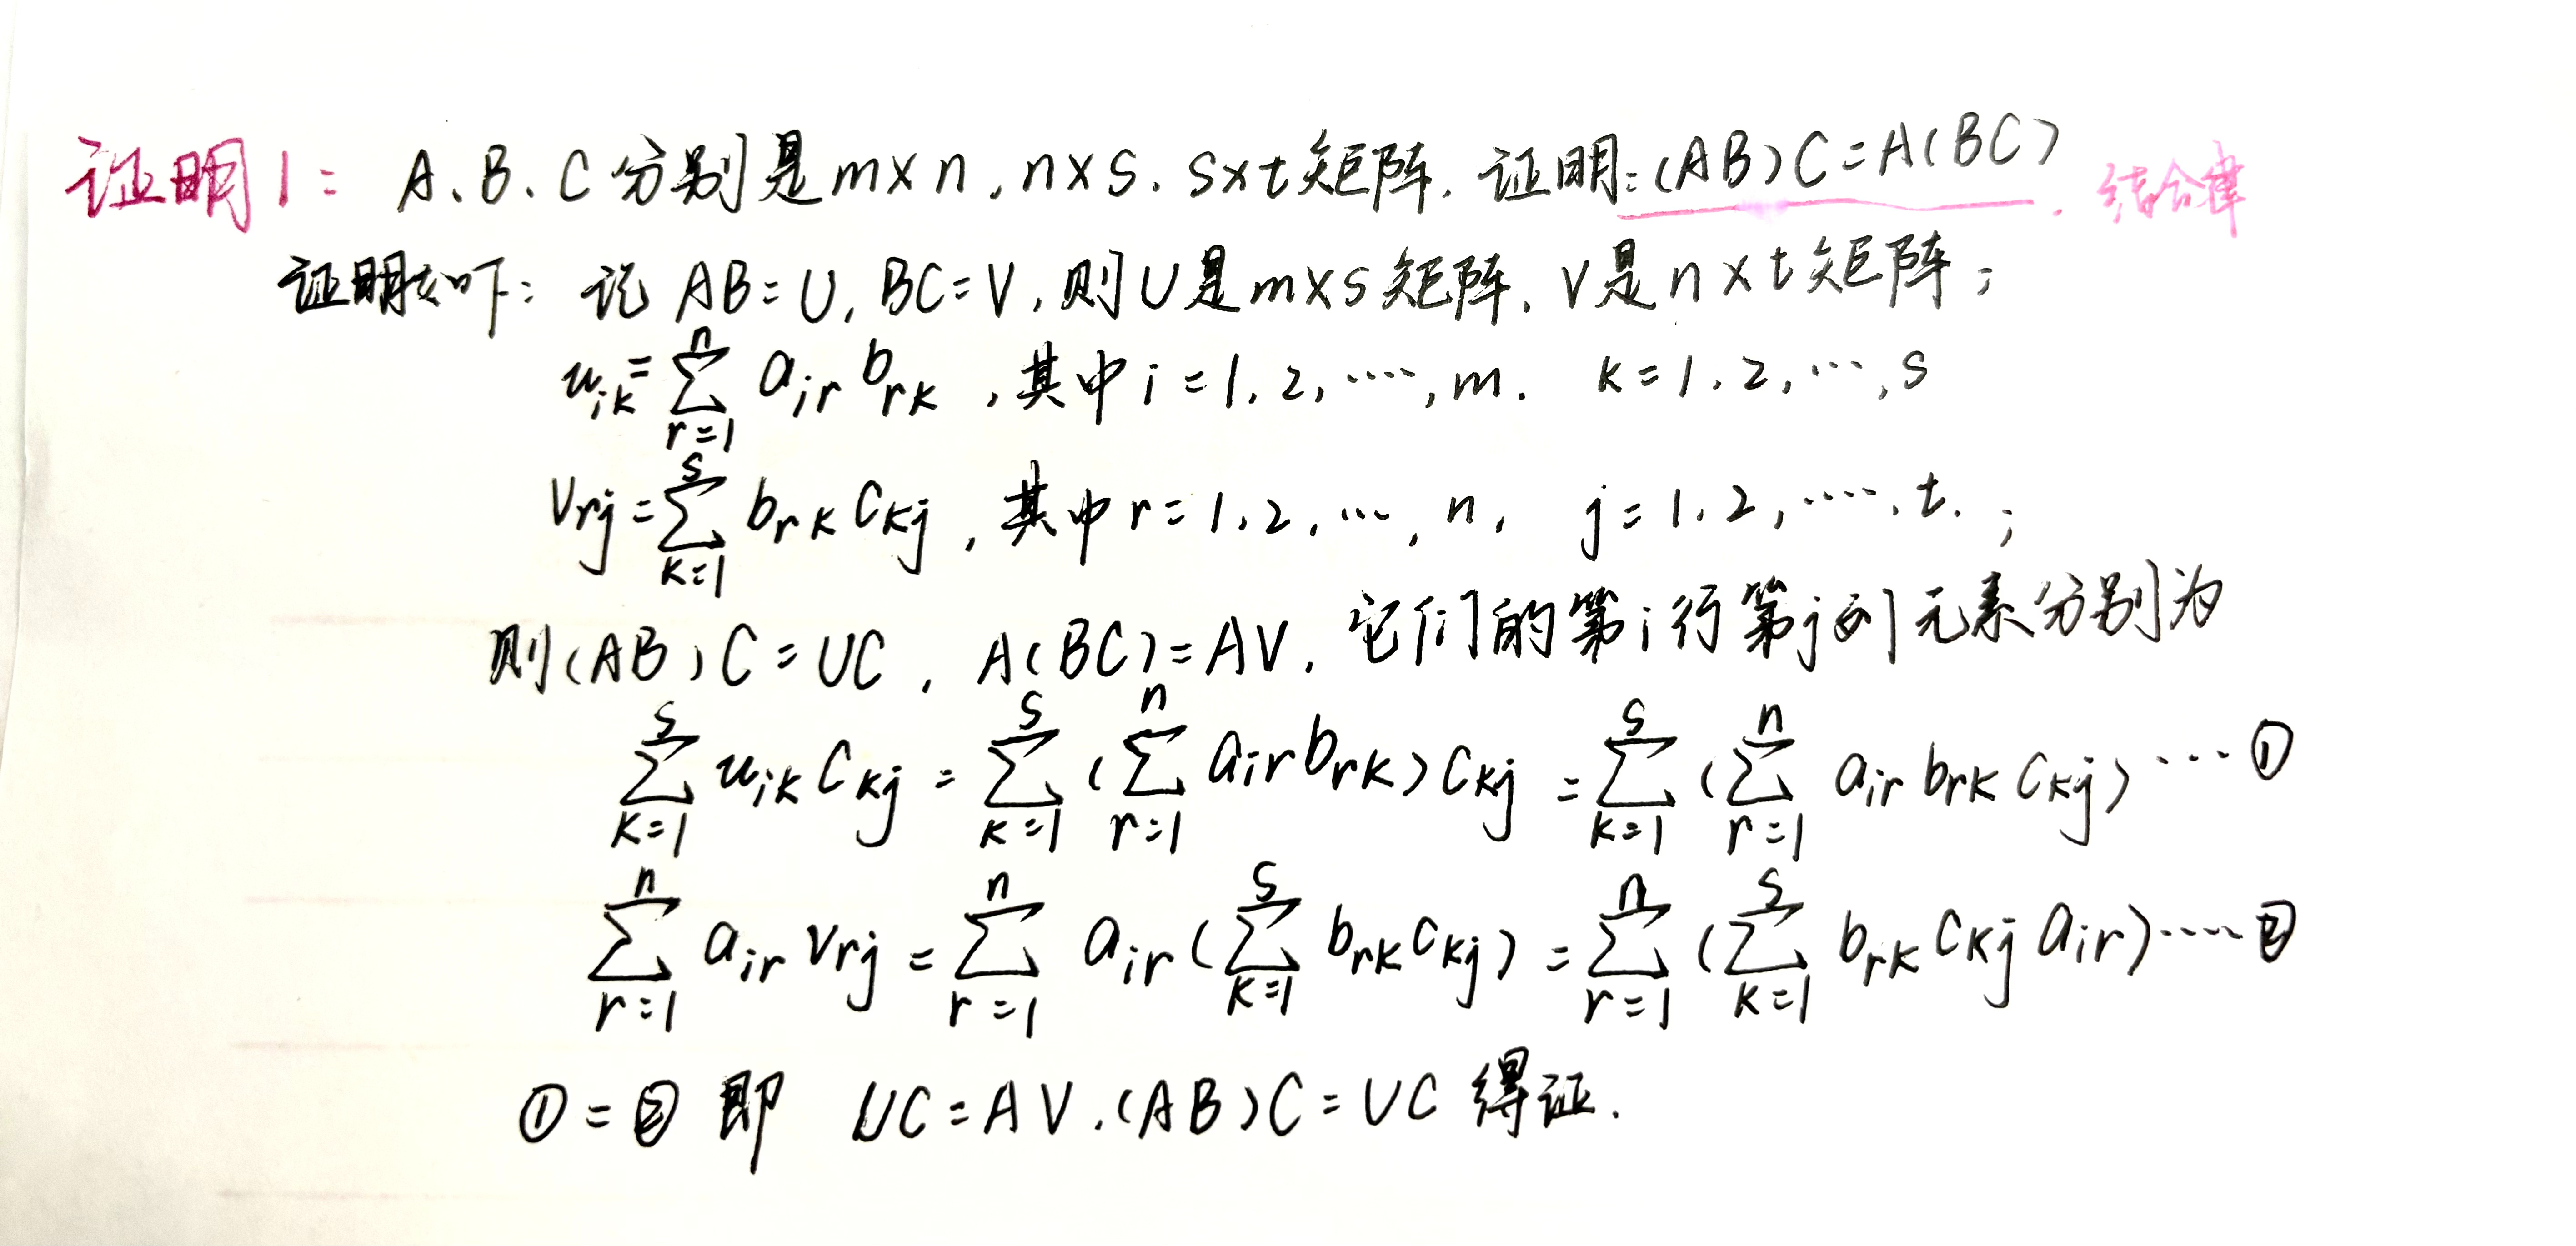 证明1: A、B、C分别是m×n,n×s、s×t矩阵.证明:(AB)C=A(BC). 结合律
证明如下: 记 AB=U,BC=V,则U是m×s矩阵,V是n×t矩阵;
u_{ik}=∑_{r=1}^{n} a_{ir} b_{rk} ,其中i=1,2,……,m. k=1,2,…,s
v_{rj}=∑_{k=1}^{s} b_{rk} c_{kj} ,其中r=1,2,…,n, j=1,2,……,t.;
则(AB)C=UC, A(BC)=AV,它们的第i行第j列元素分别为
∑_{k=1}^{s} u_{ik} c_{kj} = ∑_{k=1}^{s} (∑_{r=1}^{n} a_{ir} b_{rk}) c_{kj} = ∑_{k=1}^{s} (∑_{r=1}^{n} a_{ir} b_{rk} c_{kj}) …… ①
∑_{r=1}^{n} a_{ir} v_{rj} = ∑_{r=1}^{n} a_{ir} (∑_{k=1}^{s} b_{rk} c_{kj}) = ∑_{r=1}^{n} (∑_{k=1}^{s} b_{rk} c_{kj} a_{ir}) …… ②
①=② 即 UC=AV.(AB)C=UC 得证.